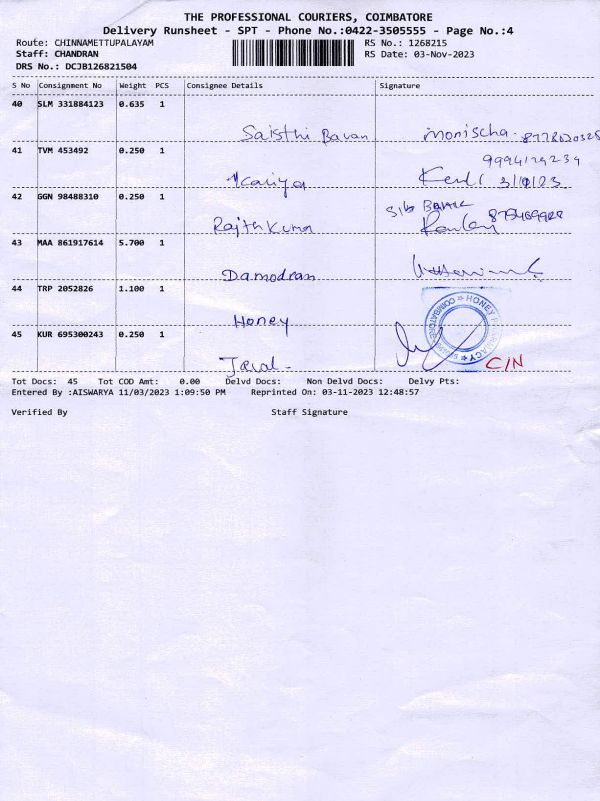 THE PROFESSIONAL COURIERS, COIMBATORE
Delivery Runsheet - SPT - Phone No.:0422-3505555 - Page No.:4
Route: CHINNAMETTUPALAYAM RS No.: 1268215
Staff: CHANDRAN RS Date: 03-Nov-2023
DRS No.: DCJB126821504
S No Consignment No Weight PCS Consignee Details Signature
40 SLM 331884123 0.635 1
Saisthi Bavan Monischa
41 TVM 453492 0.250 1
Kaviya
42 GGN 98488310 0.250 1
Rajth Kumar
43 MAA 861917614 5.700 1
Damodran
44 TRP 2052826 1.100 1
Honey HONEY COIMBATORE
45 KUR 695300243 0.250 1
C/N
Tot Docs: 45 Tot COD Amt: 0.00 Delvd Docs: Non Delvd Docs: Delvy Pts:
Entered By :AISWARYA 11/03/2023 1:09:50 PM Reprinted On: 03-11-2023 12:48:57
Verified By Staff Signature